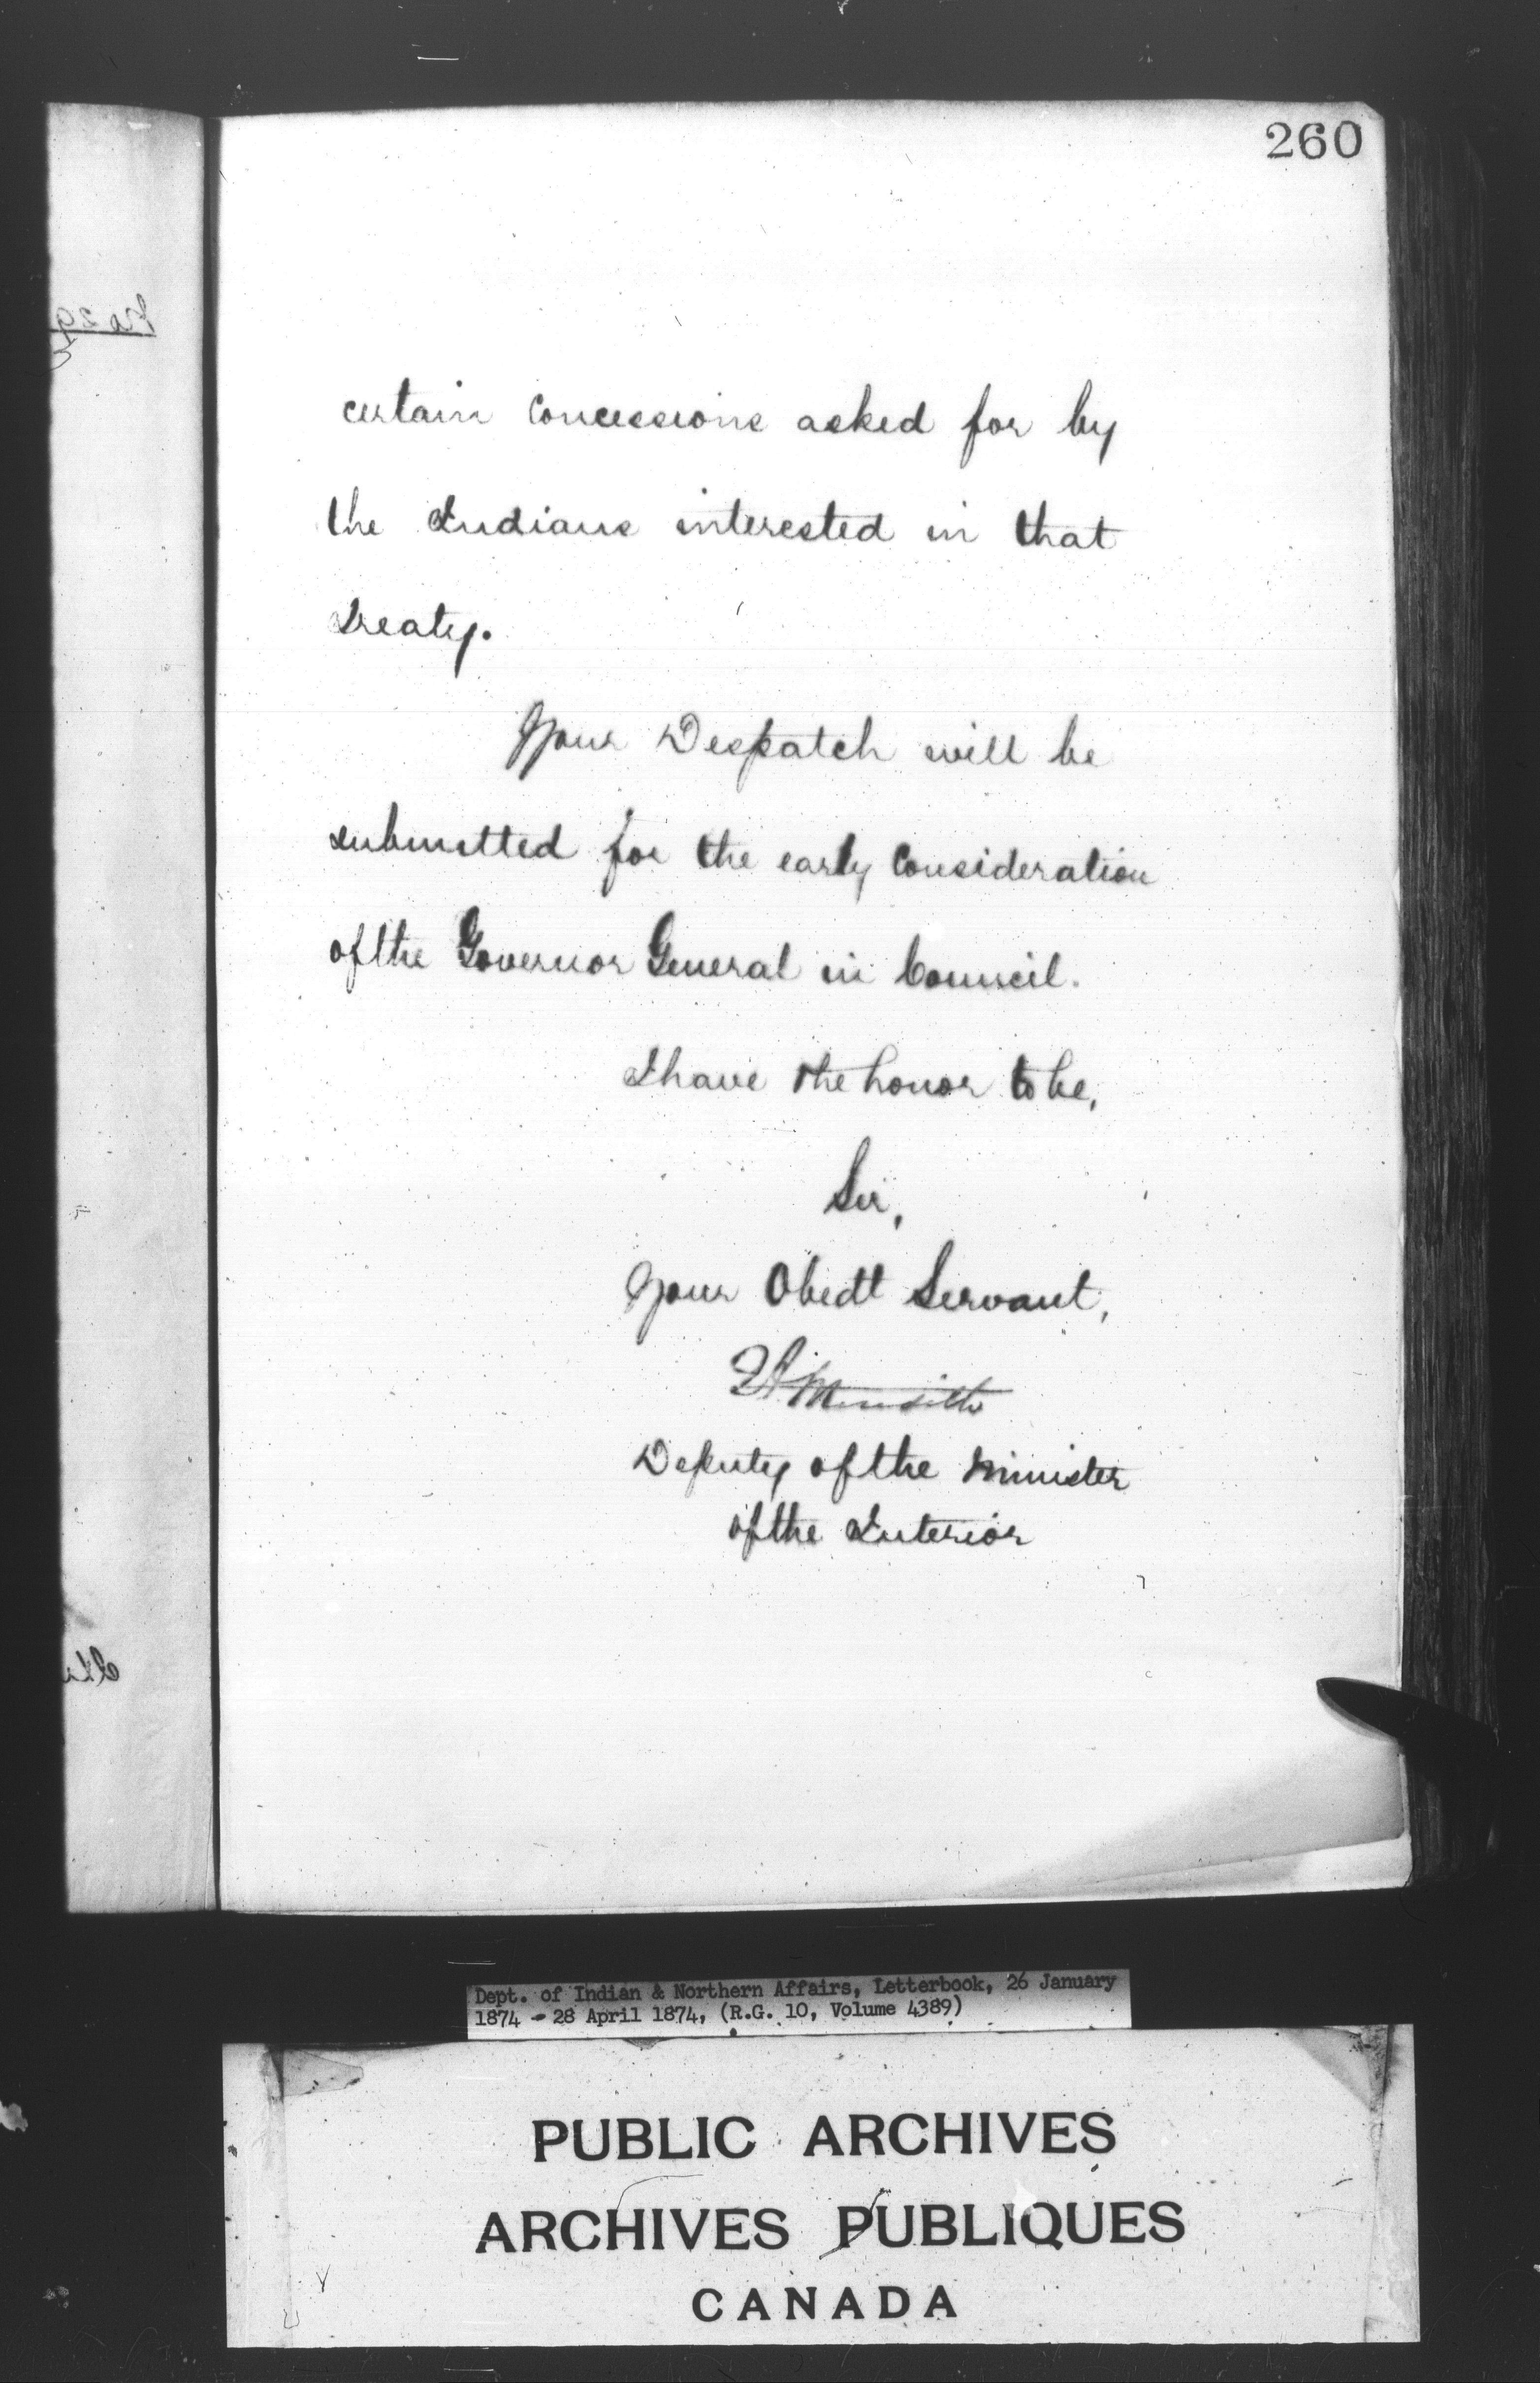 260
certain Concessions asked for by
the Indians interested in that
Treaty.
Your Despatch will be
submitted for the early Consideration
of the Governor General in Council.
I have the honor to be,
Sir,
Your Obedt Servant,
Meredith
Deputy of the Minister
of the Interior
Dept. of Indian & Northern Affairs, Letterbook, 26 January
1874 - 28 April 1874, (R.G. 10, Volume 4389)
PUBLIC ARCHIVES
ARCHIVES PUBLIQUES
CANADA